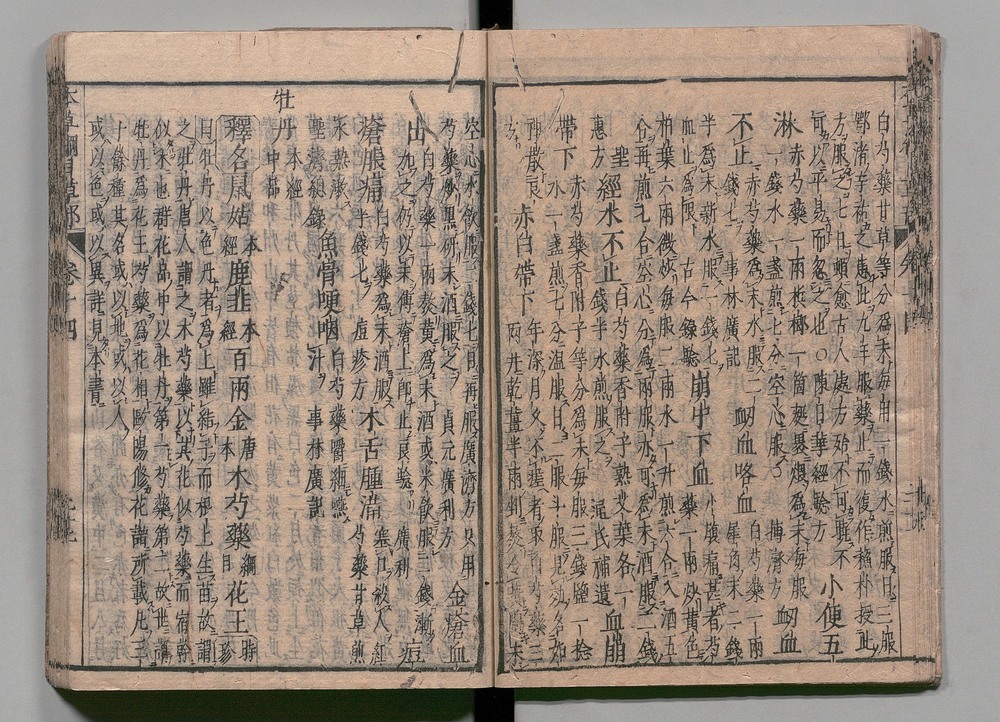 白芍藥甘草等分爲末毎用一錢水煎服日三服
鄂渚辛祐之患此九年服藥止而復作蘇朴授此
方服之七日頓愈古人處方殆不可曉不
可以平易而忽之也○陳日華經驗方 小便五
淋 赤芍藥一兩檳榔一箇麫裹煨爲末毎服
一錢水一盞煎七分空心服 博濟方 衂血
不止 赤芍藥爲末水服二 衂血咯血 白芍藥一兩犀角末二錢
半爲末新水服一錢七 事林廣記 崩中下血 小腹痛甚者芍藥一兩炒黄色
血止爲限 古今錄驗
柏葉六兩微炒毎服二兩水一升煎六合入酒五
合再煎七合空心分爲兩服亦可爲末酒服二錢
聖惠方 經水不止 白芍藥香附子熟艾葉各一錢半水煎服之 熊氏補遺 血崩
帶下 赤芍藥香附子等分爲末毎服三錢鹽一捻
水一盞煎七分温服日二服十服見効名如
神散 良方 赤白帶下 年深月久不瘥者取白芍藥三兩并乾薑半兩剉熬令黄擣末
空心水飲服二錢七日再服廣濟方只用
芍藥炒黒研末酒服之 貞元廣利方 金瘡血
出 白芍藥一兩熬黄爲末酒或米飲服二錢漸
加之仍以末傅瘡上即止良驗 廣利 痘
瘡脹痛 白芍藥爲末酒服半錢七 痘疹方 木舌腫滿 塞口殺人紅芍藥甘草煎
水熱漱 聖濟總錄 魚骨哽咽 白芍藥嚼細嚥汁 事林廣記
牡丹 本經中品
釋名 鼠姑 本經 鹿韭 本經 百兩金 唐本 木芍藥 綱目 花王 時珍
曰牡丹以色丹者爲上雖結子而根上生苗故謂
之牡丹唐人謂之木芍藥以其花似芍藥而宿幹
似木也群花品中以牡丹第一芍藥第二故世謂
牡丹爲花王芍藥爲花相歐陽修花譜所載凡三
十餘種其名或以地或以人
或以色或以異詳見本書
本草綱目草部 卷十四